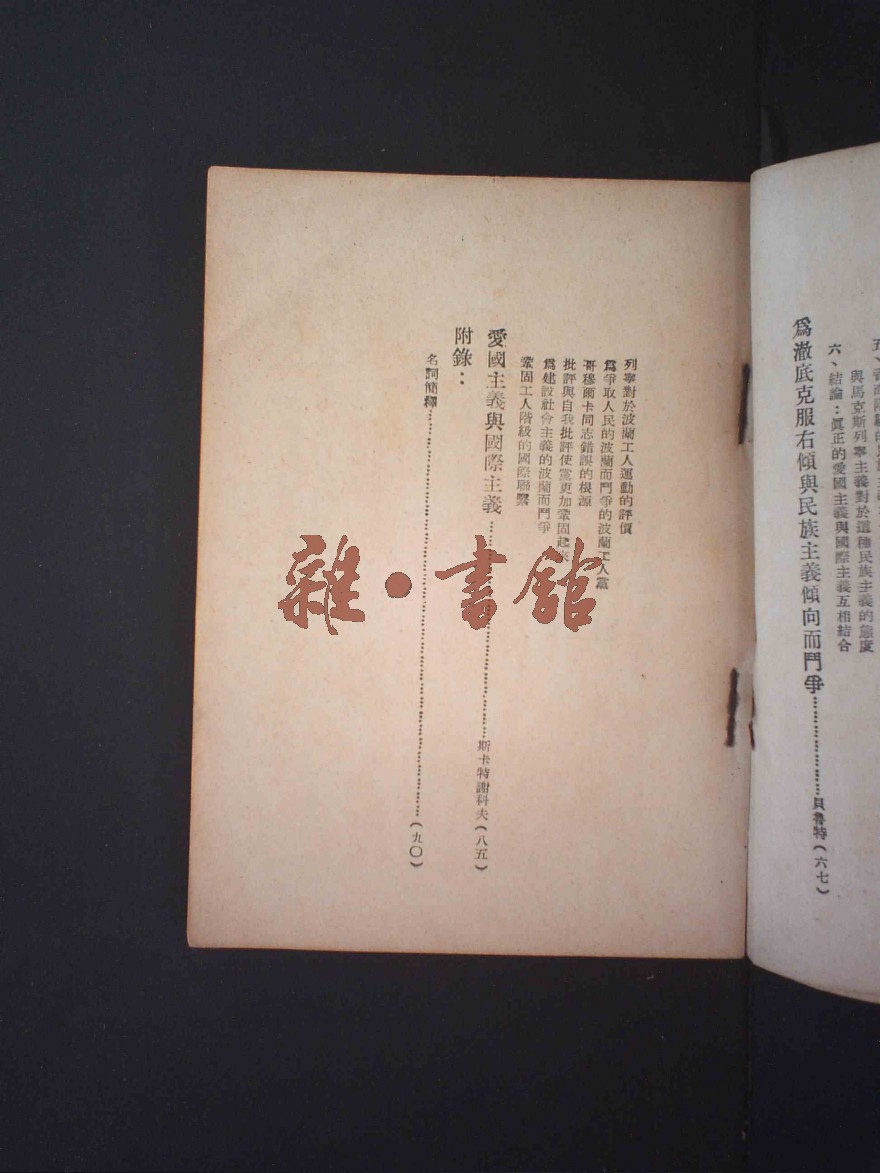 與馬克斯列寧主義對於這種民族主義的態度
六、結論：眞正的愛國主義與國際主義互相結合
爲澈底克服右傾與民族主義傾向而鬥爭……………………貝魯特（六七）
列寧對於波蘭工人運動的評價
爲爭取人民的波蘭而鬥爭的波蘭工人黨
哥穆爾卡同志錯誤的根源
批評與自我批評使黨更加鞏固起來
爲建設社會主義的波蘭而鬥爭
鞏固工人階級的國際聯繫
愛國主義與國際主義……………………斯卡特謝科夫（八五）
附錄：
名詞簡釋……………………（九〇）
雜·書館